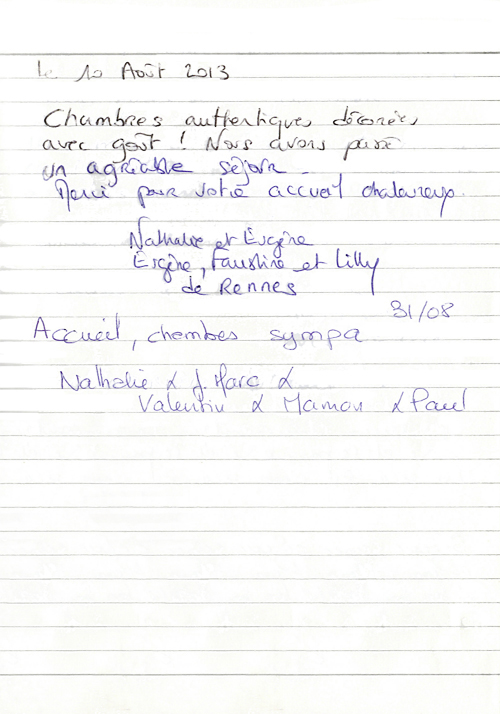 le 10 Août 2013
Chambres authentiques, décorées,
avec goût ! Nous avons passé
un agréable séjour.
Merci pour votre accueil chaleureux.
Nathalie et Eugène
Eugène, Faustine et Lilly
de Rennes
31/08
Accueil, chambes sympa
Nathalie & J. Marc &
Valentin & Mamou & Paul